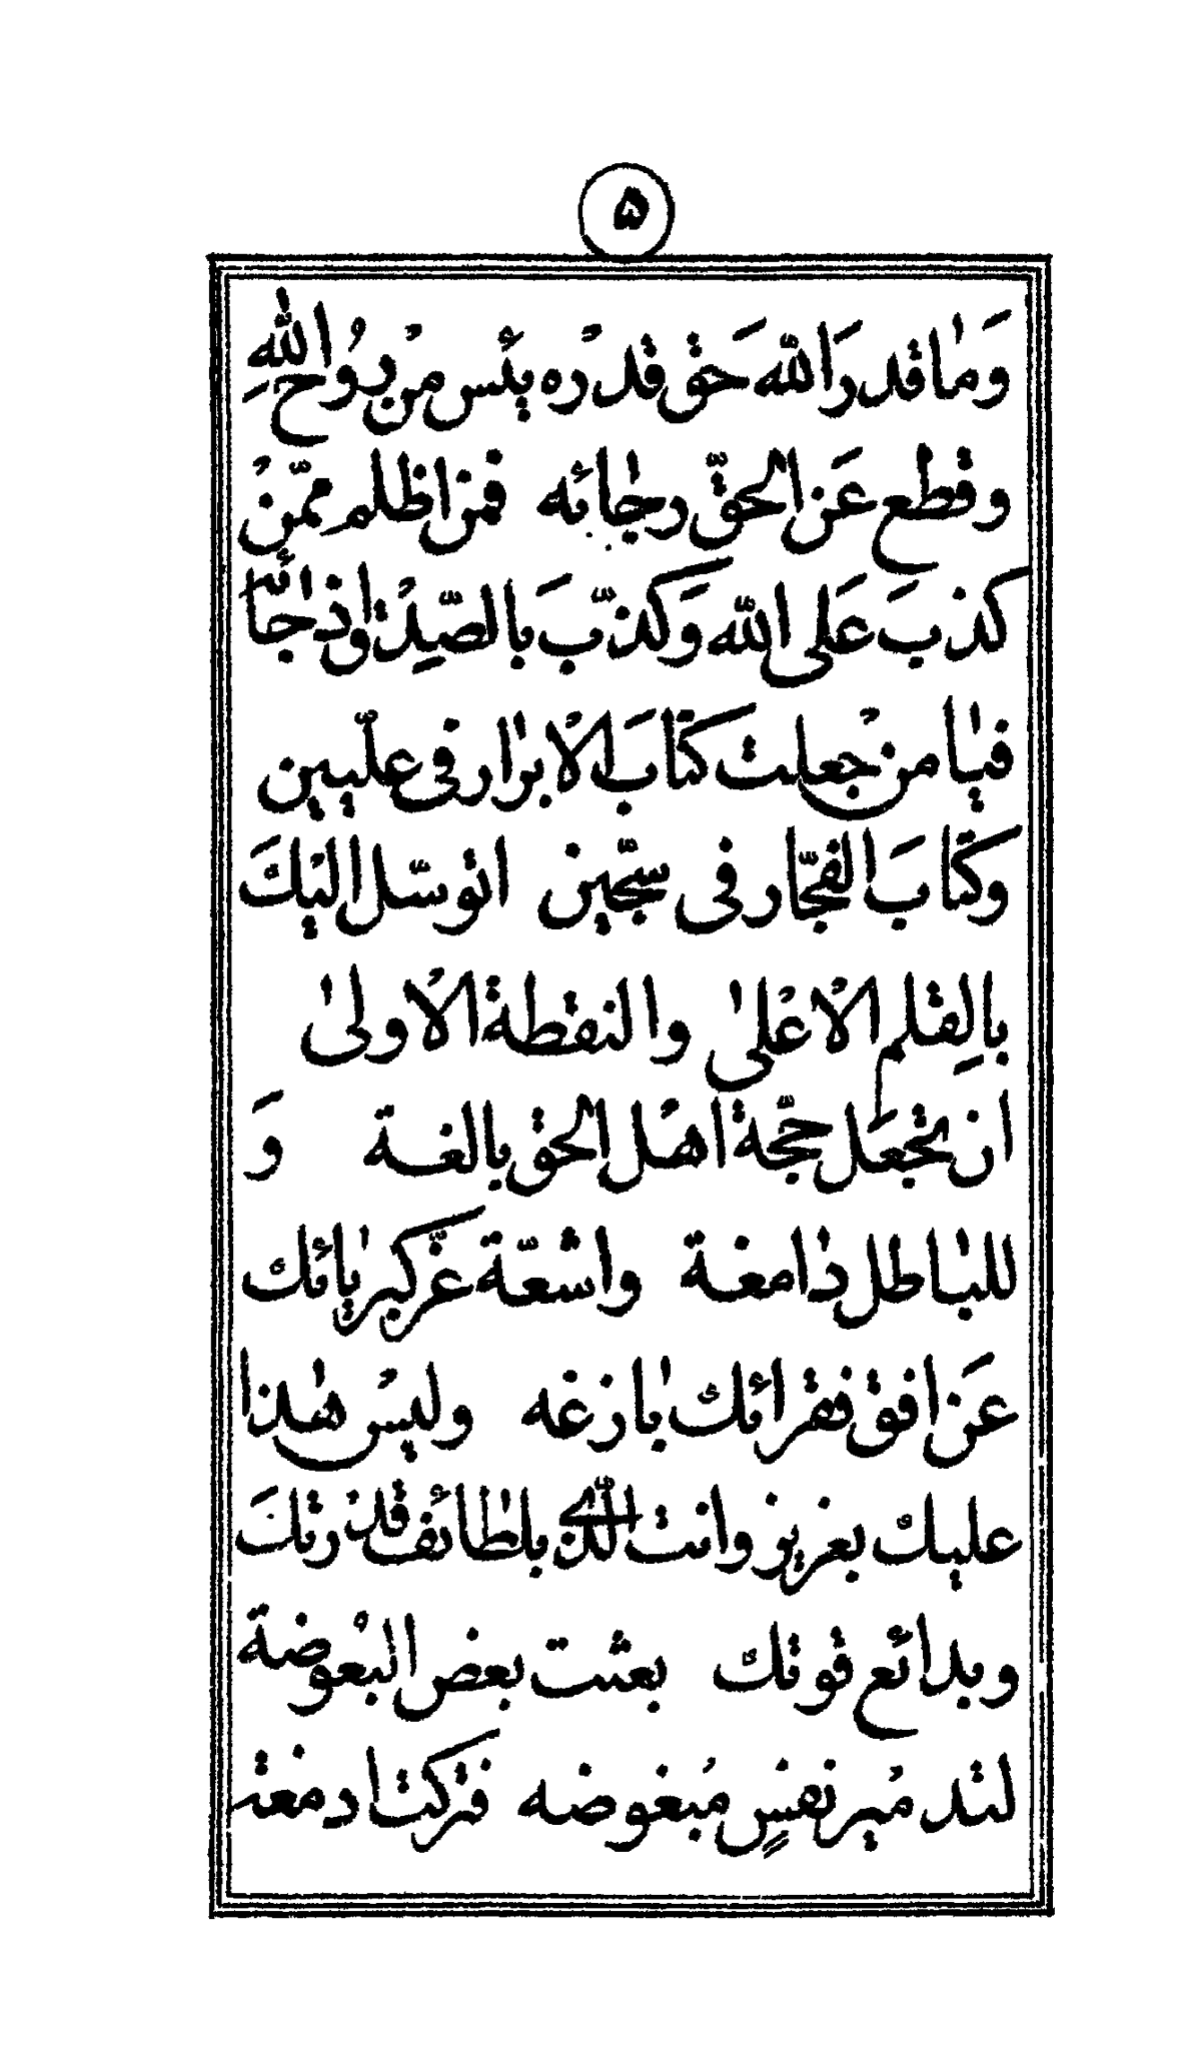 ۵
وَمٰا قدرَ اللّه حَق قدْره يئَس منْ روُح اللّهِ
وقطع عَن الحقّ رجٰائه فمن اظلم ممّنْ
كذبَ عَلى اللّه وَكذّبَ بالصّدِق اذ جٰائَه
فيٰا من جْعلت كتٰابَ الاْبرٰار فى علّيين
وكتٰابَ الفجّار فى سجّين اتوسّل اليْكَ
بالِقلم الاْعْلىٰ والنقطة الاْولىٰ
ان تجْعَل حجّة اهْل الحق بالغة وَ
للبٰاطل دٰامغة واشعّة عزّ كبريٰائك
عَن افق فقرائك بٰازغه وليسْ هٰذا
عليك بعزيز وانت الّذى بلطٰائف قدْرتكَ
وبدائع قوتك بعثت بعض البْعوضة
لتدمير نفسٍ مُبغوضه فتركت ادمغته